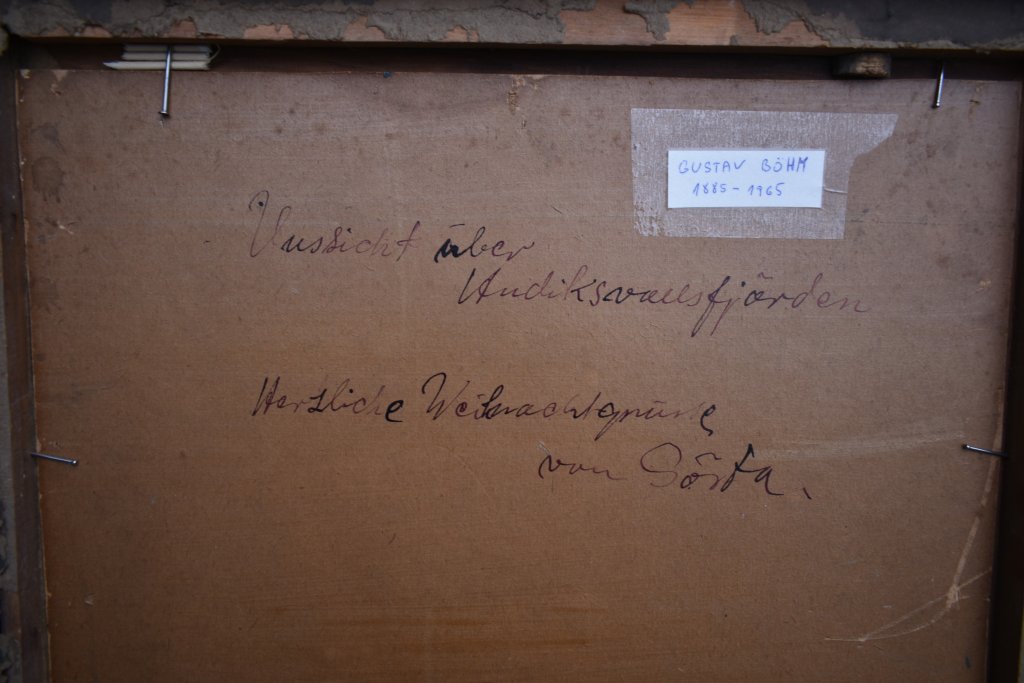 GUSTAV BÖHM
1885-1965
Aussicht über
Hudiksvallsfjärden
Herzliche Weihnachtgrüsse
von Gösta.